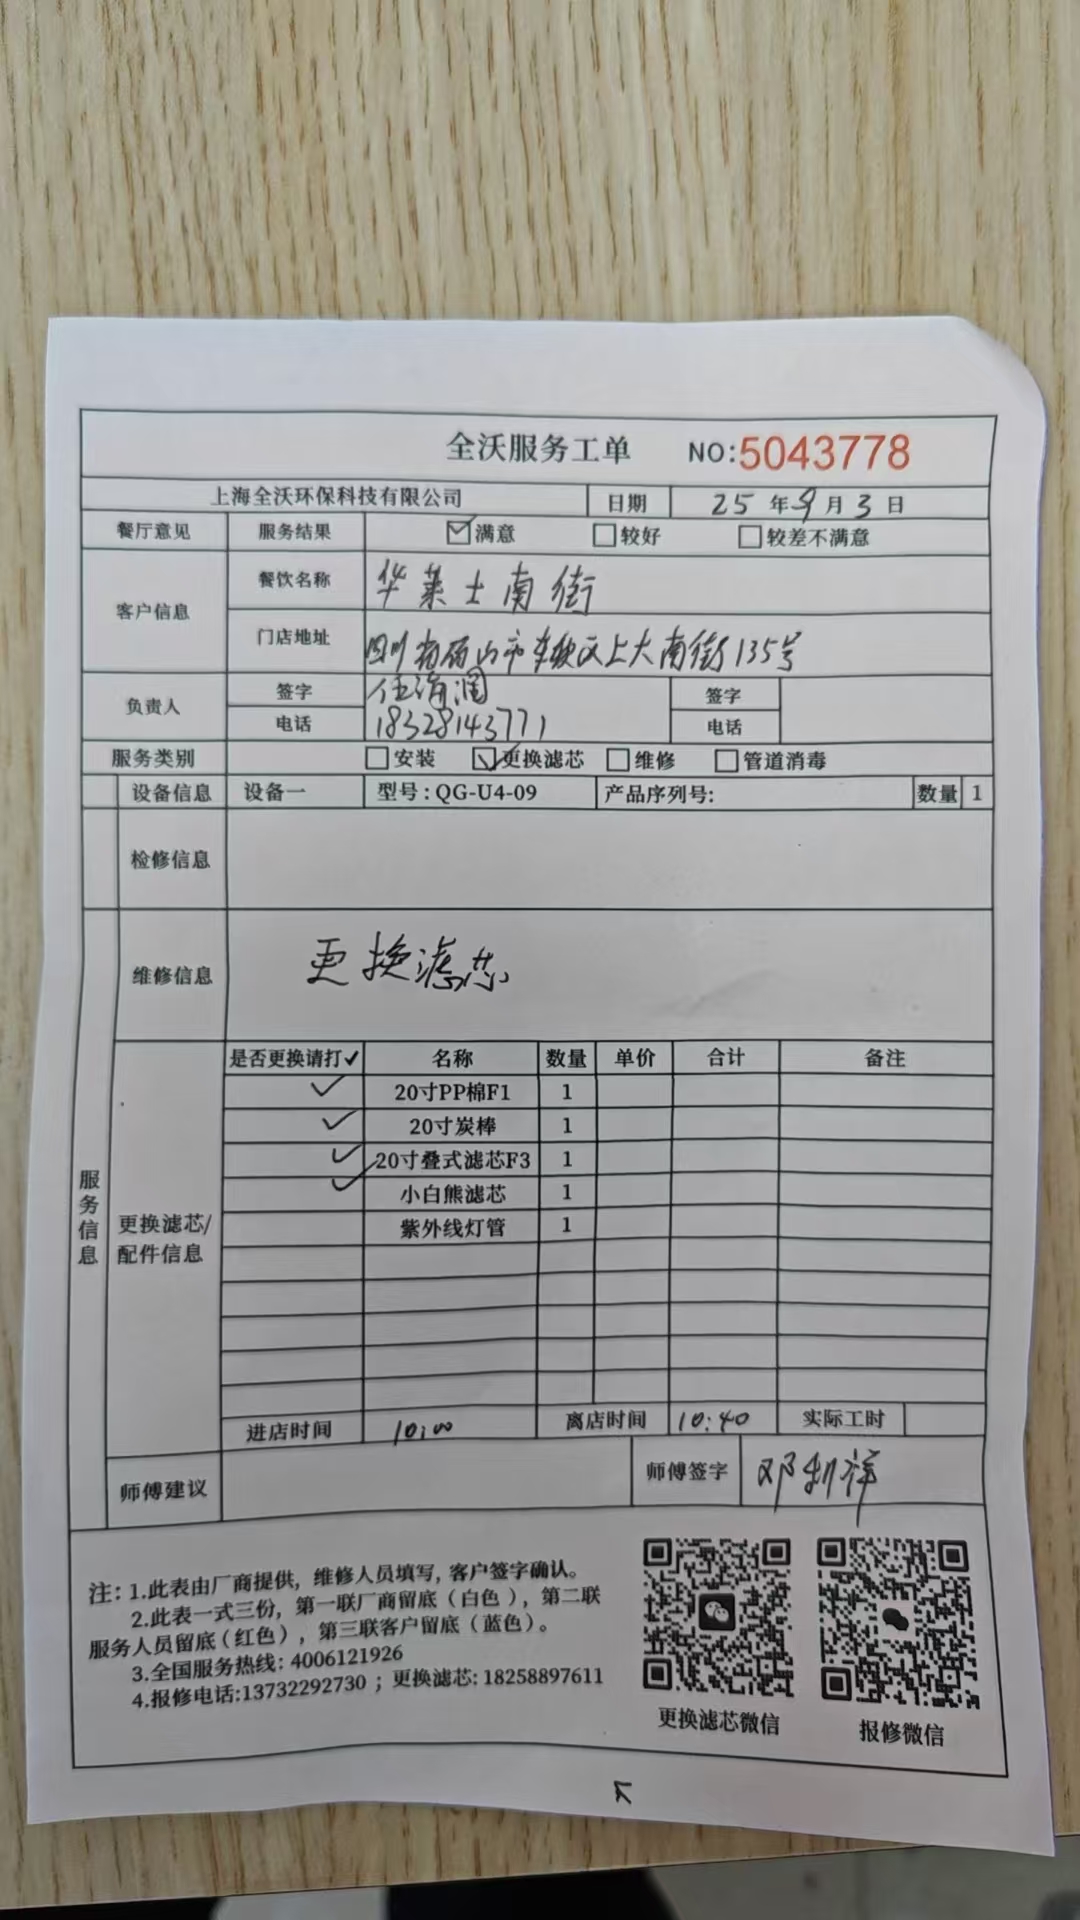 全沃服务工单 NO:5043778
上海全沃环保科技有限公司 日期 25 年 9 月 3 日
餐厅意见 服务结果 满意 较好 较差不满意
客户信息 餐饮名称 华莱士南街
门店地址 四川省 山市 区上大南街135号
负责人 签字 伍 签字
电话 18328143771 电话
服务类别 安装 更换滤芯 维修 管道消毒
设备信息 设备一 型号:QG-U4-09 产品序列号: 数量 1
检修信息
维修信息 更换滤芯
服务信息
更换滤芯/配件信息
是否更换请打✓ 名称 数量 单价 合计 备注
✓ 20寸PP棉F1 1
✓ 20寸炭棒 1
✓ 20寸叠式滤芯F3 1
✓ 小白熊滤芯 1
紫外线灯管 1
进店时间 10:00 离店时间 10:40 实际工时
师傅建议 师傅签字 邓 祥
注: 1.此表由厂商提供, 维修人员填写, 客户签字确认。
2.此表一式三份, 第一联厂商留底 (白色), 第二联
服务人员留底(红色), 第三联客户留底 (蓝色)。
3.全国服务热线: 4006121926
4.报修电话:13732292730 ; 更换滤芯: 18258897611
更换滤芯微信 报修微信